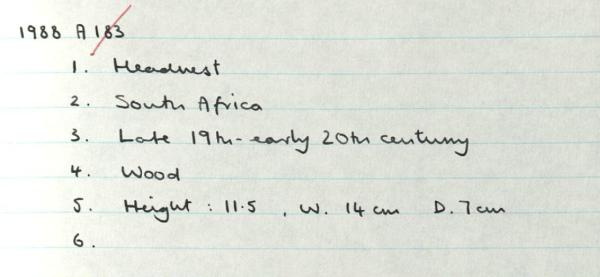 1988 A 183
1. Headrest
2. South Africa
3. Late 19th-early 20th century
4. Wood
5. Height : 11.5 , W. 14 cm D. 7 cm
6.